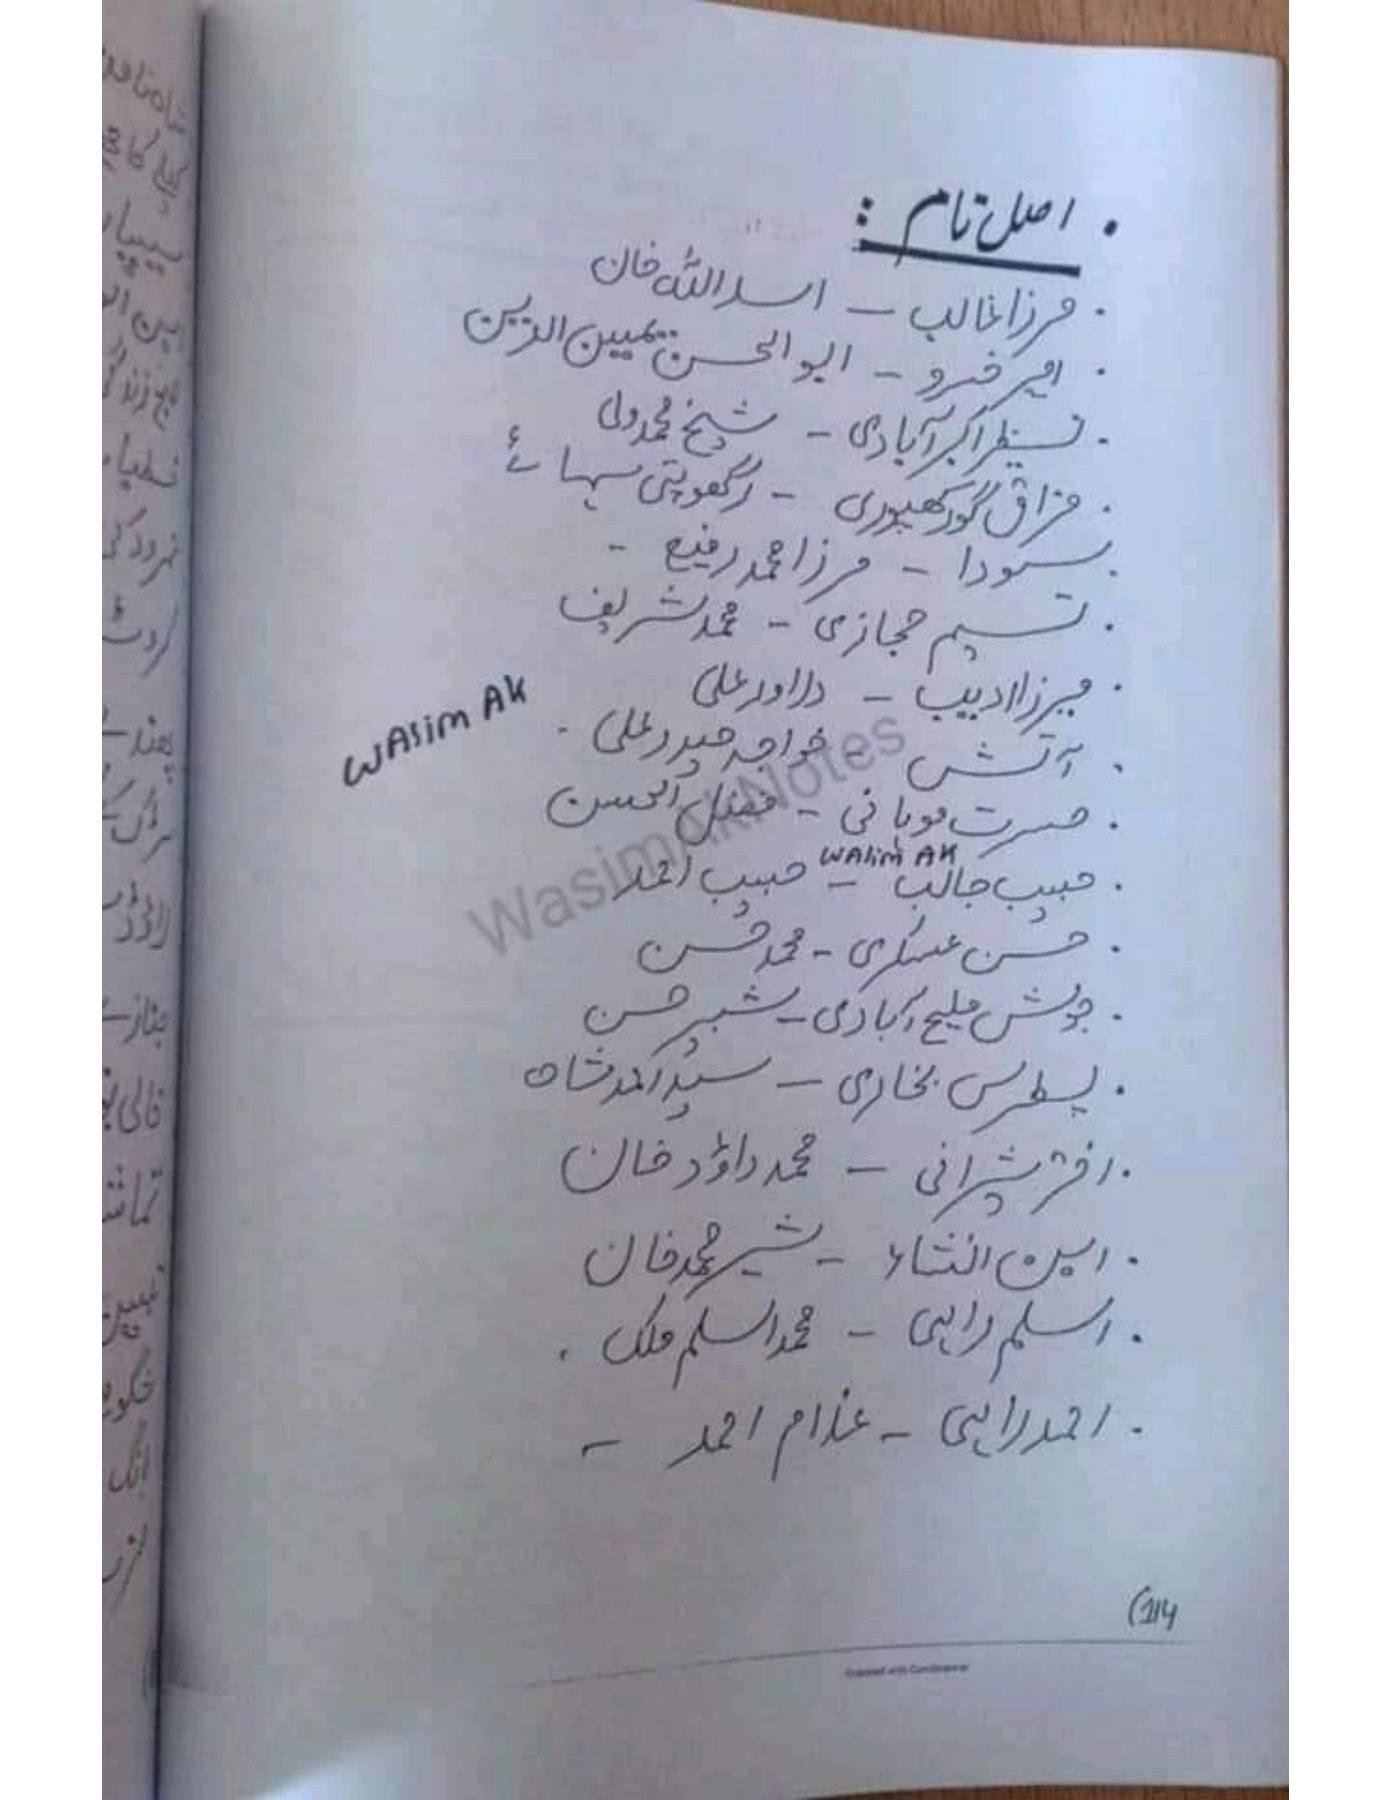 . اصل نام :
. مرزا غالب – اسد اللہ خان
. امیر خسرو – ابوالحسن یمین الدین
. نظیر اکبر آبادی – شیخ محمد ولی
. فراق گورکھپوری – رگھوپتی سہائے
. سودا – مرزا محمد رفیع -
. نسیم حجازی – محمد شریف
. میرزا ادیب – دلاور علی
WASIM AK
. آتش – خواجہ حیدر علی .
. حسرت موہانی – فضل الحسن
WASIM AK
. حبیب جالب – حبیب احمد
. حسن عسکری – محمد حسن
. جوش ملیح آبادی – شبیر حسن
. پطرس بخاری – سید احمد شاہ
. اختر شیرانی – محمد داؤد خان
. ابن انشاء – شیر محمد خان
. اسلم راہی – محمد اسلم ملک .
. احمد راہی – غلام احمد –
WasimAkNotes
(114
Scanned with CamScanner